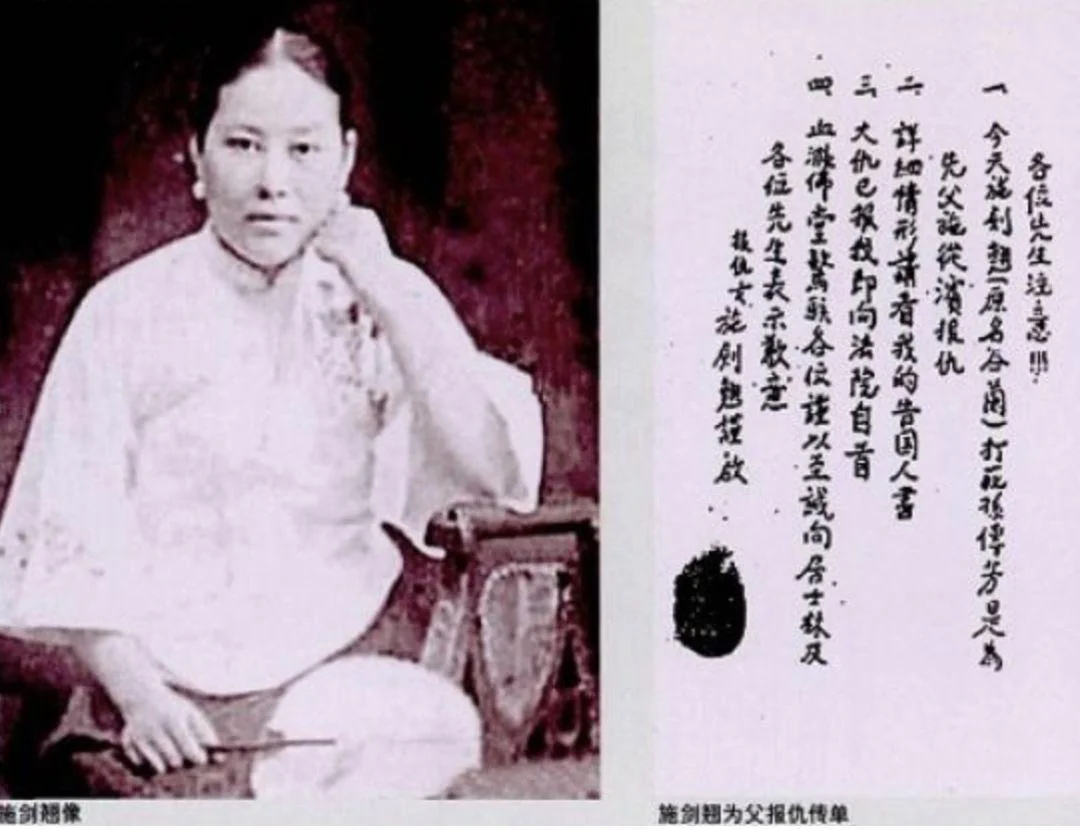 各位先生注意!!!
一 今天施剑翘(原名谷蘭)打死孫傳芳是為
先父施從濱报仇
二 詳细情形請看我的告国人書
三 大仇已报我即向法院自首
四 血濺佛堂驚駭各位謹以至誠向居士林及
各位先生表示歉意
报仇女施剑翘謹啟
施剑翘像
施剑翘为父报仇传单